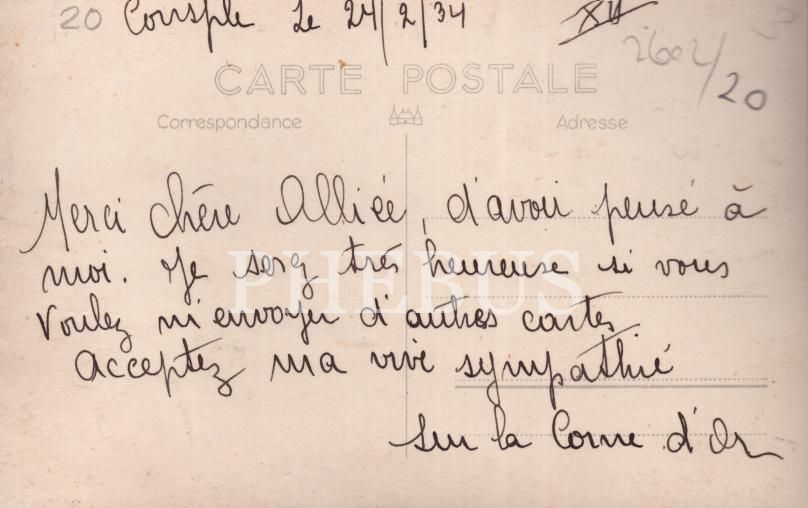 20 Consple Le 24/2/34 XII
CARTE POSTALE
2602/20
Correspondance Adresse
Merci chère Alliée, d'avoir pensé à
moi. Je serez très heureuse si vous
voulez m'envoyer d'autres cartes
Acceptez ma vive sympathie
Sur la Corne d'Or
PHEBUS